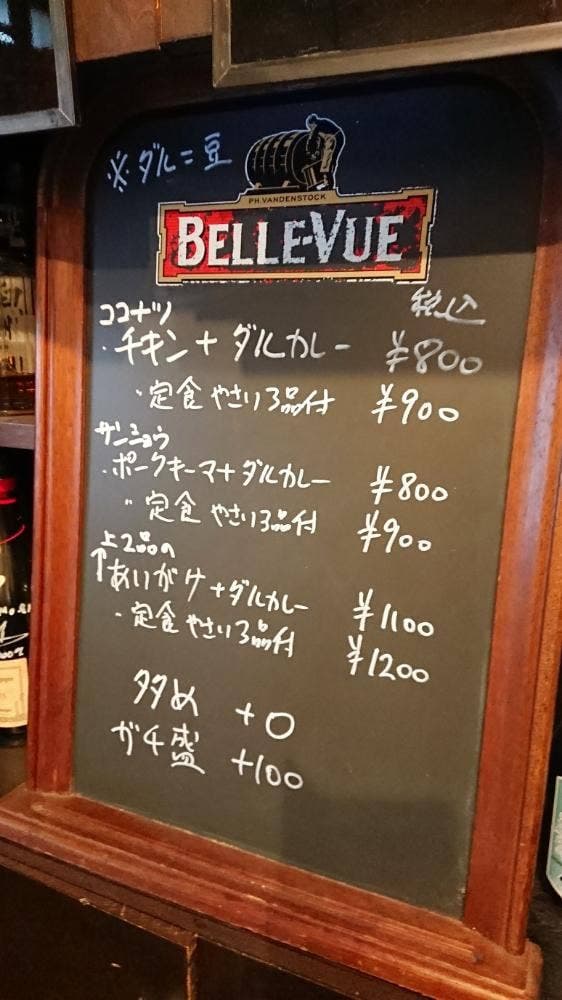 ※ダル=豆
PH.VANDENSTOCK
BELLE-VUE
税込
ココナツ
・チキン+ダルカレー ¥800
・定食 やさい3品付 ¥900
サンショウ
・ポークキーマ+ダルカレー ¥800
〃 定食 やさい3品付 ¥900
↑上2品の
あいがけ+ダルカレー ¥1100
・定食 やさい3品付 ¥1200
多め +0
ガチ盛 +100